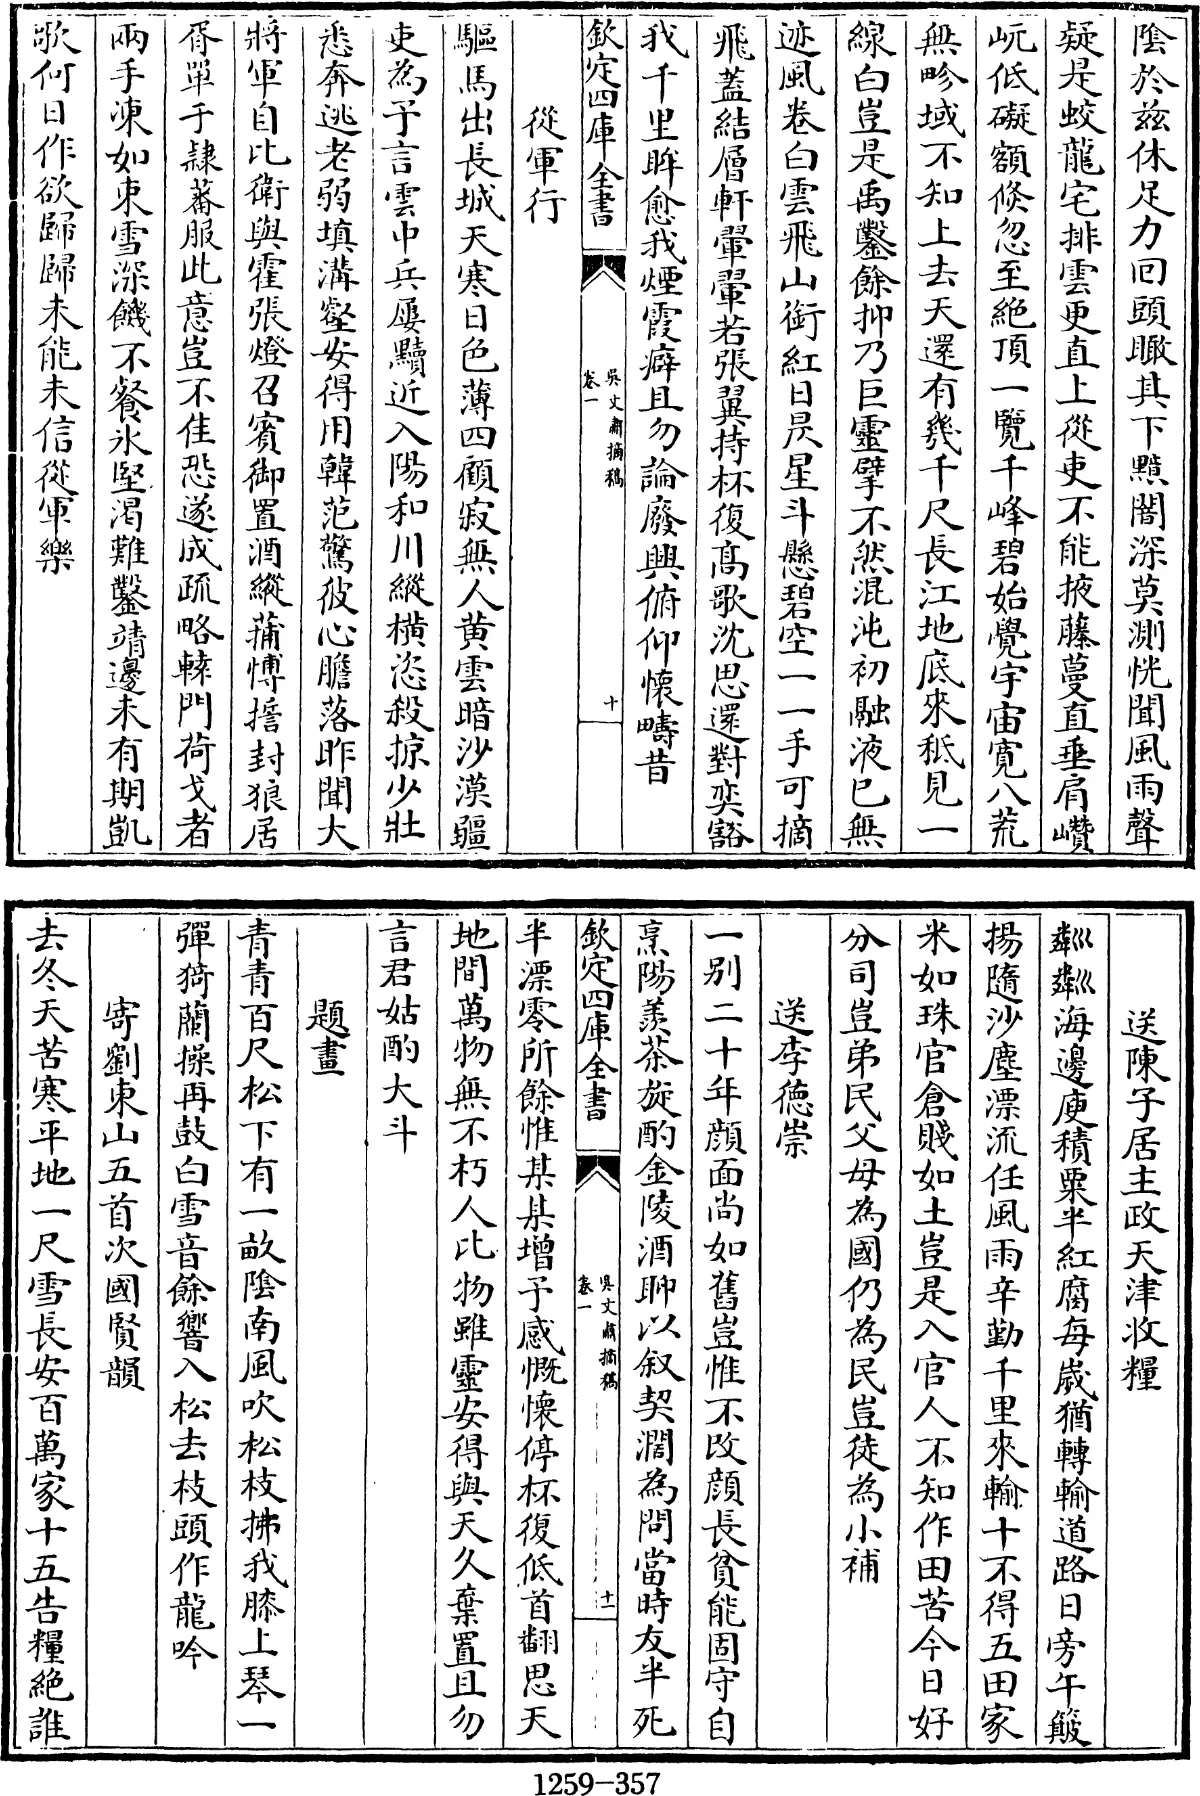 陰於兹休足力回頭瞰其下黯闇深莫測恍聞風雨聲
疑是蛟龍宅排雲更直上從吏不能掖藤蔓直垂肩巑
岏低礙額倐忽至絶頂一覽千峰碧始覺宇宙寛八荒
無畛域不知上去天還有幾千尺長江地底來秪見一
線白豈是禹鑿餘抑乃巨靈擘不然混沌初融液已無
迹風卷白雲飛山銜紅日昃星斗懸碧空一一手可摘
飛蓋結層軒翬翬若張翼持杯復髙歌沈思還對奕豁
我千里眸愈我煙霞癖且勿論廢興俯仰懷疇昔
欽定四庫全書
吳文肅摘稿
卷一
十
從軍行
驅馬出長城天寒日色薄四顧寂無人黄雲暗沙漠驅
吏為予言雲中兵屢黷近入陽和川縱横恣殺掠少壯
悉奔逃老弱填溝壑安得用韓范驚彼心膽落昨聞大
將軍自比衛與霍張燈召賓御置酒縱蒱博誓封狼居
胥單于隷蕃服此意豈不佳恐遂成疏略轅門荷戈者
兩手凍如束雪深饑不餐氷堅渴難鑿靖邊未有期凱
歌何日作欲歸歸未能未信從軍樂
送陳子居主政天津收糧
粼粼海邊庾積粟半紅腐每嵗猶轉輸道路日旁午簸
揚隨沙塵漂流任風雨辛勤千里來輸十不得五田家
米如珠官倉賤如土豈是入官人不知作田苦今日好
分司豈弟民父母為國仍為民豈徒為小補
送李德崇
一别二十年顔面尚如舊豈惟不改顔長貧能固守自
烹陽羨茶旋酌金陵酒聊以叙契濶為問當時友半死
欽定四庫全書
吳文肅摘稿
卷一
十一
半漂零所餘惟某某增予感慨懷停杯復低首翻思天
地間萬物無不朽人比物雖靈安得與天久棄置且勿
言君姑酌大斗
題畫
青青百尺松下有一畝陰南風吹松枝拂我膝上琴一
彈猗蘭操再鼓白雪音餘響入松去枝頭作龍吟
寄劉東山五首次國賢韻
去冬天苦寒平地一尺雪長安百萬家十五告糧絶誰
1259-357